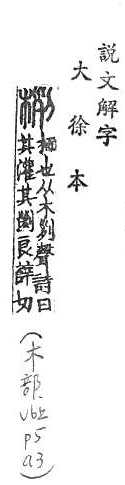 說文解字
大徐本
栵
栭也从木列聲詩曰
其灌其栵良辥切
(木部, v6上 p5 a3)